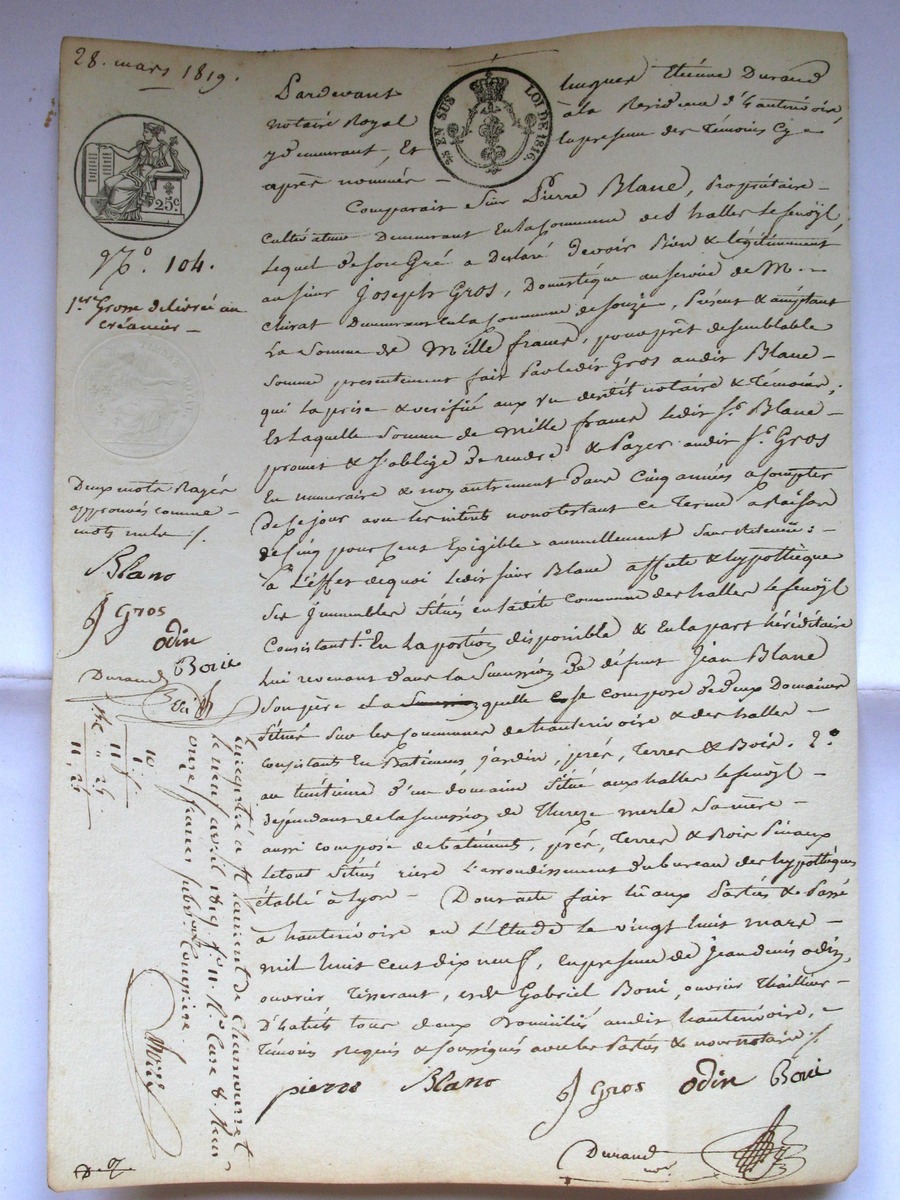 28. mars 1819.
Pardevant Etienne Durand
notaire Royal à la Residence d'hauterivoire,
y demeurant, Et En presence des Témoins Cy
après nommés
25 EN SUS LOI DE 1816.
25c
N°. 104.
1ere Grosse delivrée au
créancier
Comparait Sieur Pierre Blanc, Propriétaire
Cultivateur Demeurant En la Commune des halles Lefenoyl,
Lequel de son Gré a Declaré Devoir Bien & légitimement
au sieur Joseph Gros, Domestique au service de M.
Chirat Demeurant En la Commune de Souzy, Présent & acceptant
La Somme De Mille francs, pour prêt de semblable
Somme presentement fait Par ledit Gros audit Blanc
qui la prise & verifiée aux vu desdits notaire & Témoins;
Et Laquelle Somme de Mille francs ledit Sr. Blanc
promet & s'oblige De rendre & Payer audit Sr. Gros
En numeraire & non autrement Dans Cinq années a Compter
De ce jour avec les intérêts nonobstant ce Terme a Raison
de Cinq pour Cent Exigible annuellement Sans Retenue:
à L'effet de quoi ledit sieur Blanc affecte & hypothèque
Ses Immeubles Situés en ladite Commune des halles Lefenoyl
Consistant 1°. En La portion disponible & En la part héréditaire
Lui revenant Dans la Succession de défunt Jean Blanc
Son père La quelle se compose De deux Domaines
Situés Sur les Communes de hauterivoire & des halles
Consistants En Batimens, jardin, prés, Terres & Bois. 2°
au tènement d'un domaine Situé aux halles Lefenoyl
dépendant de la Succession de Thereze merle Sa mère
aussi composé de batiments, prés, Terres & Bois Pinaux
Le tout Situés riere L'arrondissement du bureau des hypothèques
établé à Lyon. Dont acte fait Lu aux Parties & Passé
à hauterivoire en L'Etude Le vingt huit mars
mil huit cent dix neuf, En presence de Jean denis odin,
ouvrier Tisserant, et de Gabriel Boni, ouvrier Thaillier
D'habits tous deux Domiciliés audit hauterivoire,
Témoins Requis & soussignés avec les Parties & nous notaire
pierre Blanc J Gros odin Boni
Durand
nre.
Deux mots Rayés
approuvés comme
mots nuls
Blanc
J Gros
odin
Boni
Durand
Enregistré à St. Laurent de Chamousset
le neuf avril 1819 fo. 11 Ro. Case 8. Reçu
onze francs subvon. Comprise
10
1
11
25
11, 25